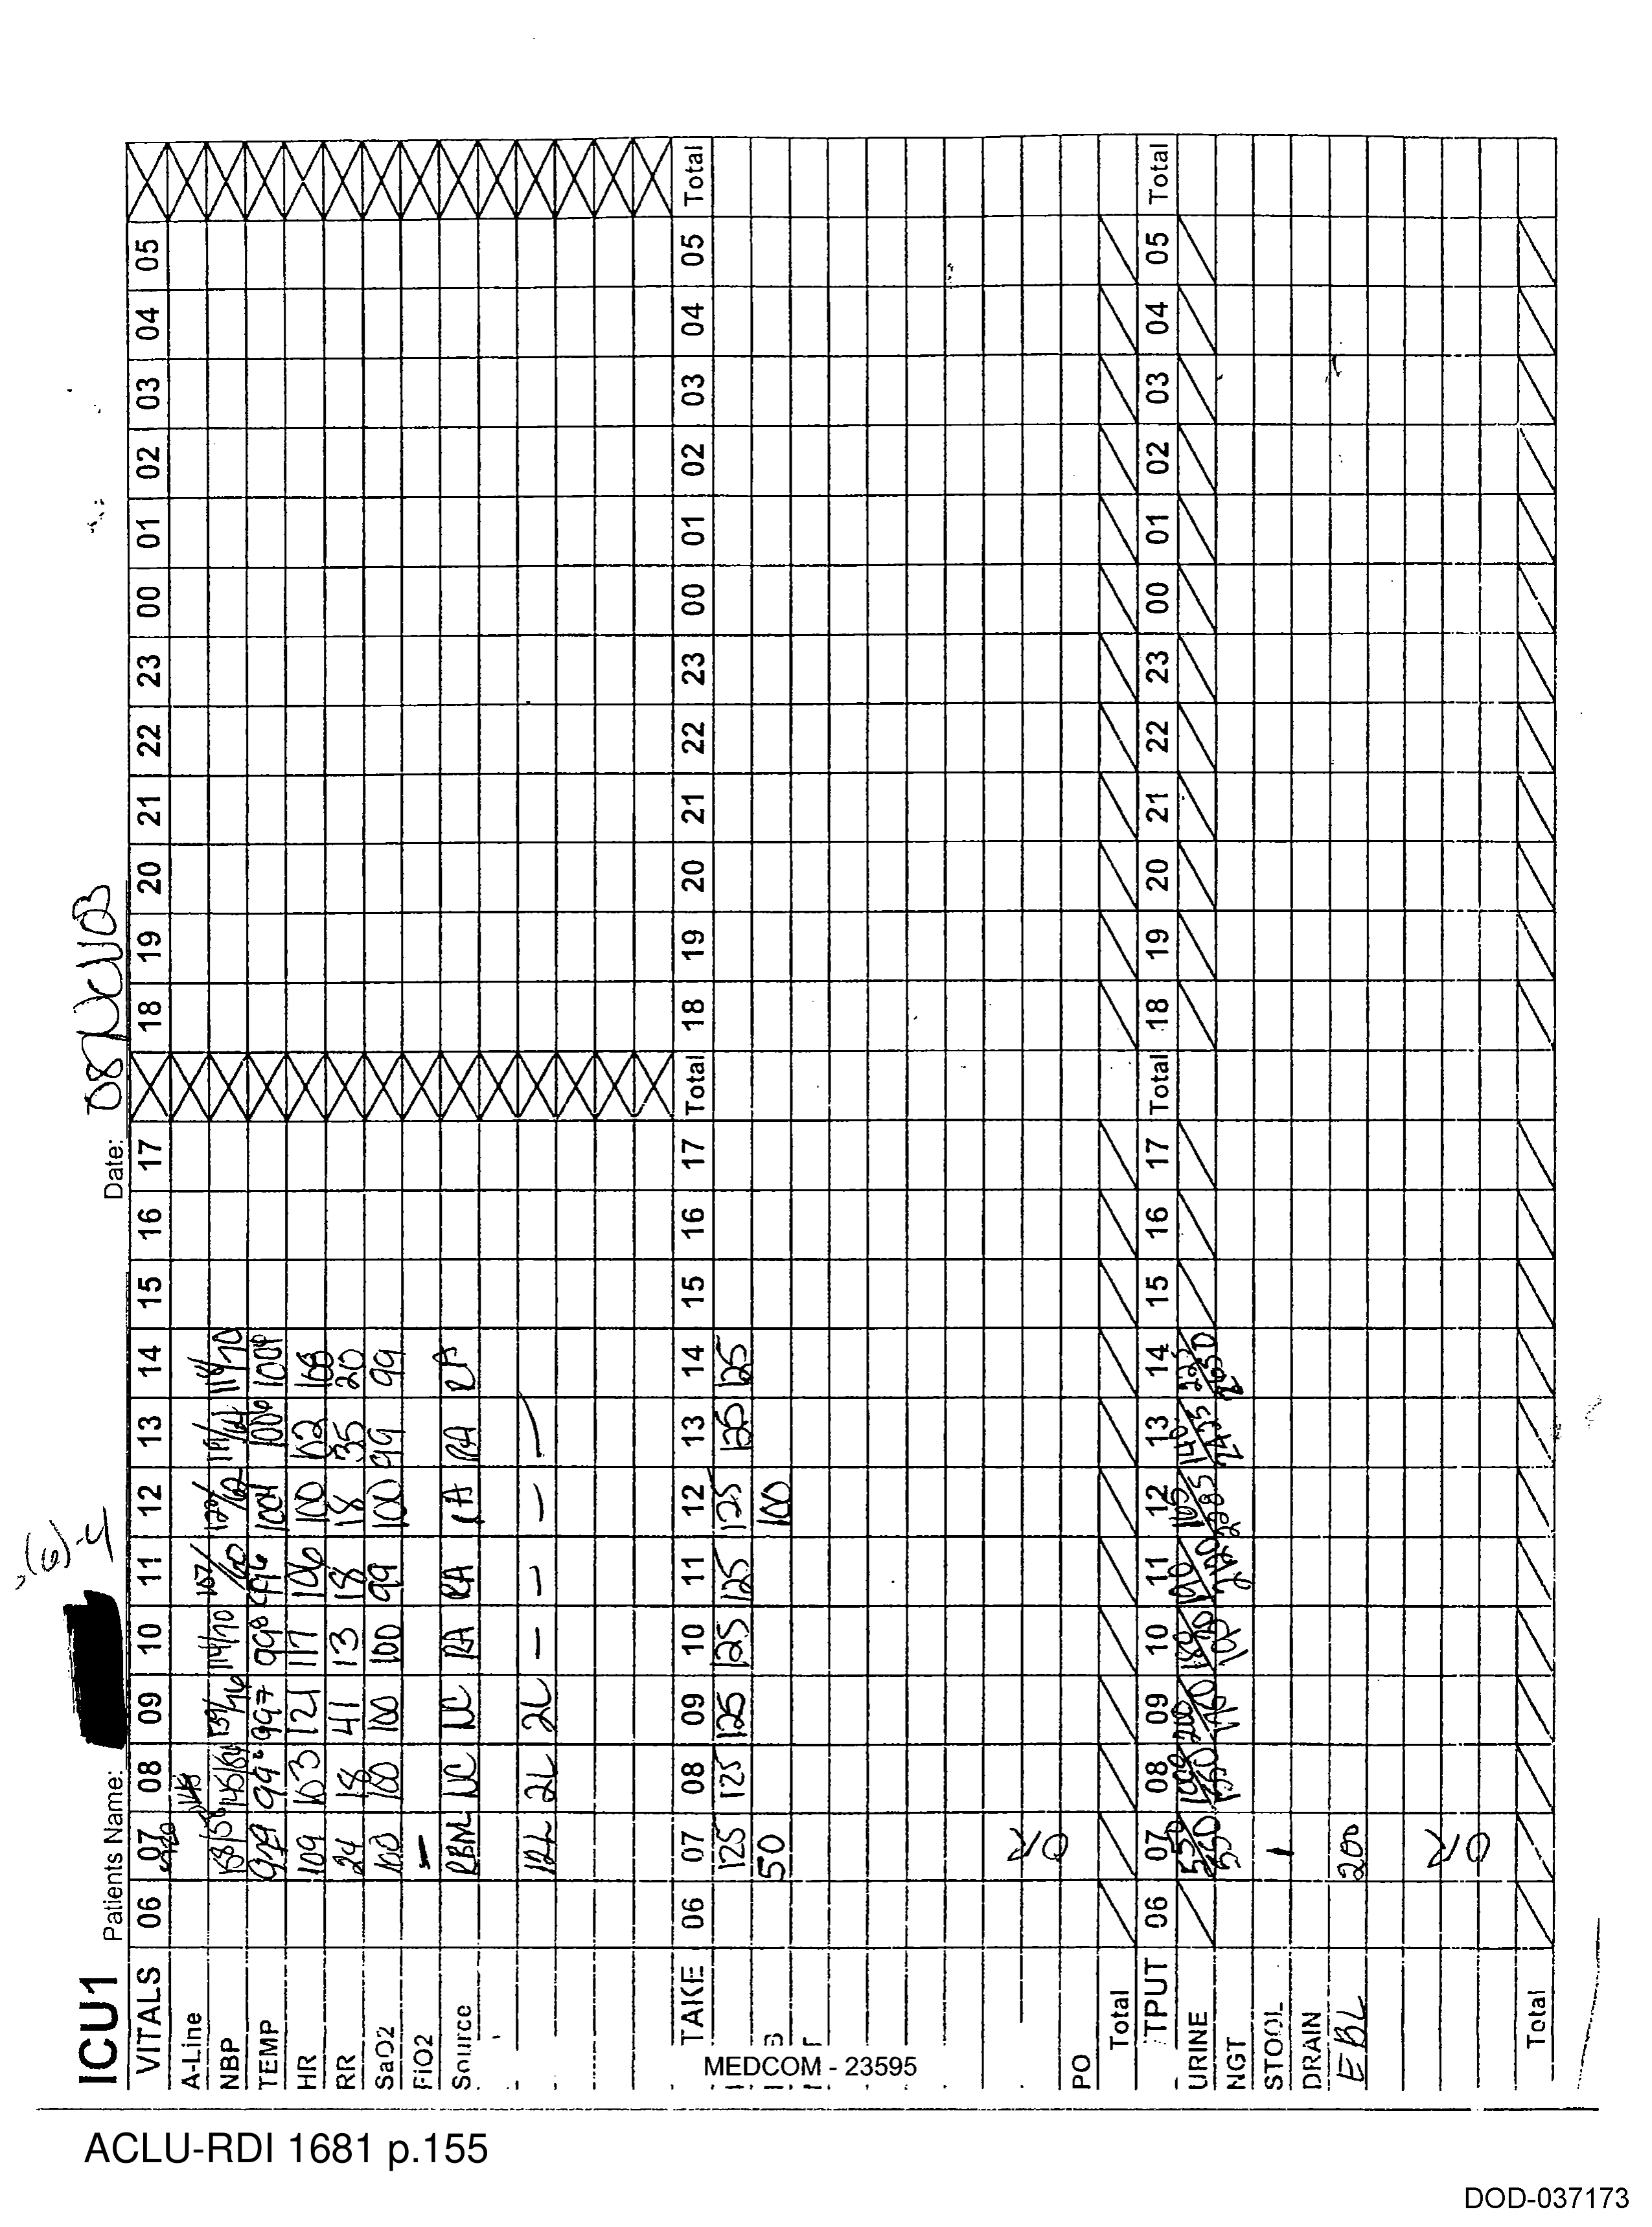 (6)-4
ICU1 Patients Name: Date: 08 Nov 03
VITALS 06 07 08 09 10 11 12 13 14 15 16 17 18 19 20 21 22 23 00 01 02 03 04 05
A-Line
NBP 145/84 139/76 114/70 107/60 122/62 114/70
TEMP 979 99² 997 998 996 1004 1006 1009
HR 109 103 121 117 106 100 102 108
RR 24 18 41 13 18 18 35 20
SaO2 100 100 100 100 99 100 99 99
FiO2 -
Source RBM NC NC RA RA RA RA RA
12L 2L 2L - - -
TAKE 06 07 08 09 10 11 12 13 14 15 16 17 Total 18 19 20 21 22 23 00 01 02 03 04 05 Total
125 125 125 125 125 125 125 125
50 100
OR
PO
Total
TPUT 06 07 08 09 10 11 12 13 14 15 16 17 Total 18 19 20 21 22 23 00 01 02 03 04 05 Total
URINE 550 200 180 190 165 140
NGT
STOOL
DRAIN
EBL 200
OR
Total
MEDCOM - 23595
ACLU-RDI 1681 p.155
DOD-037173